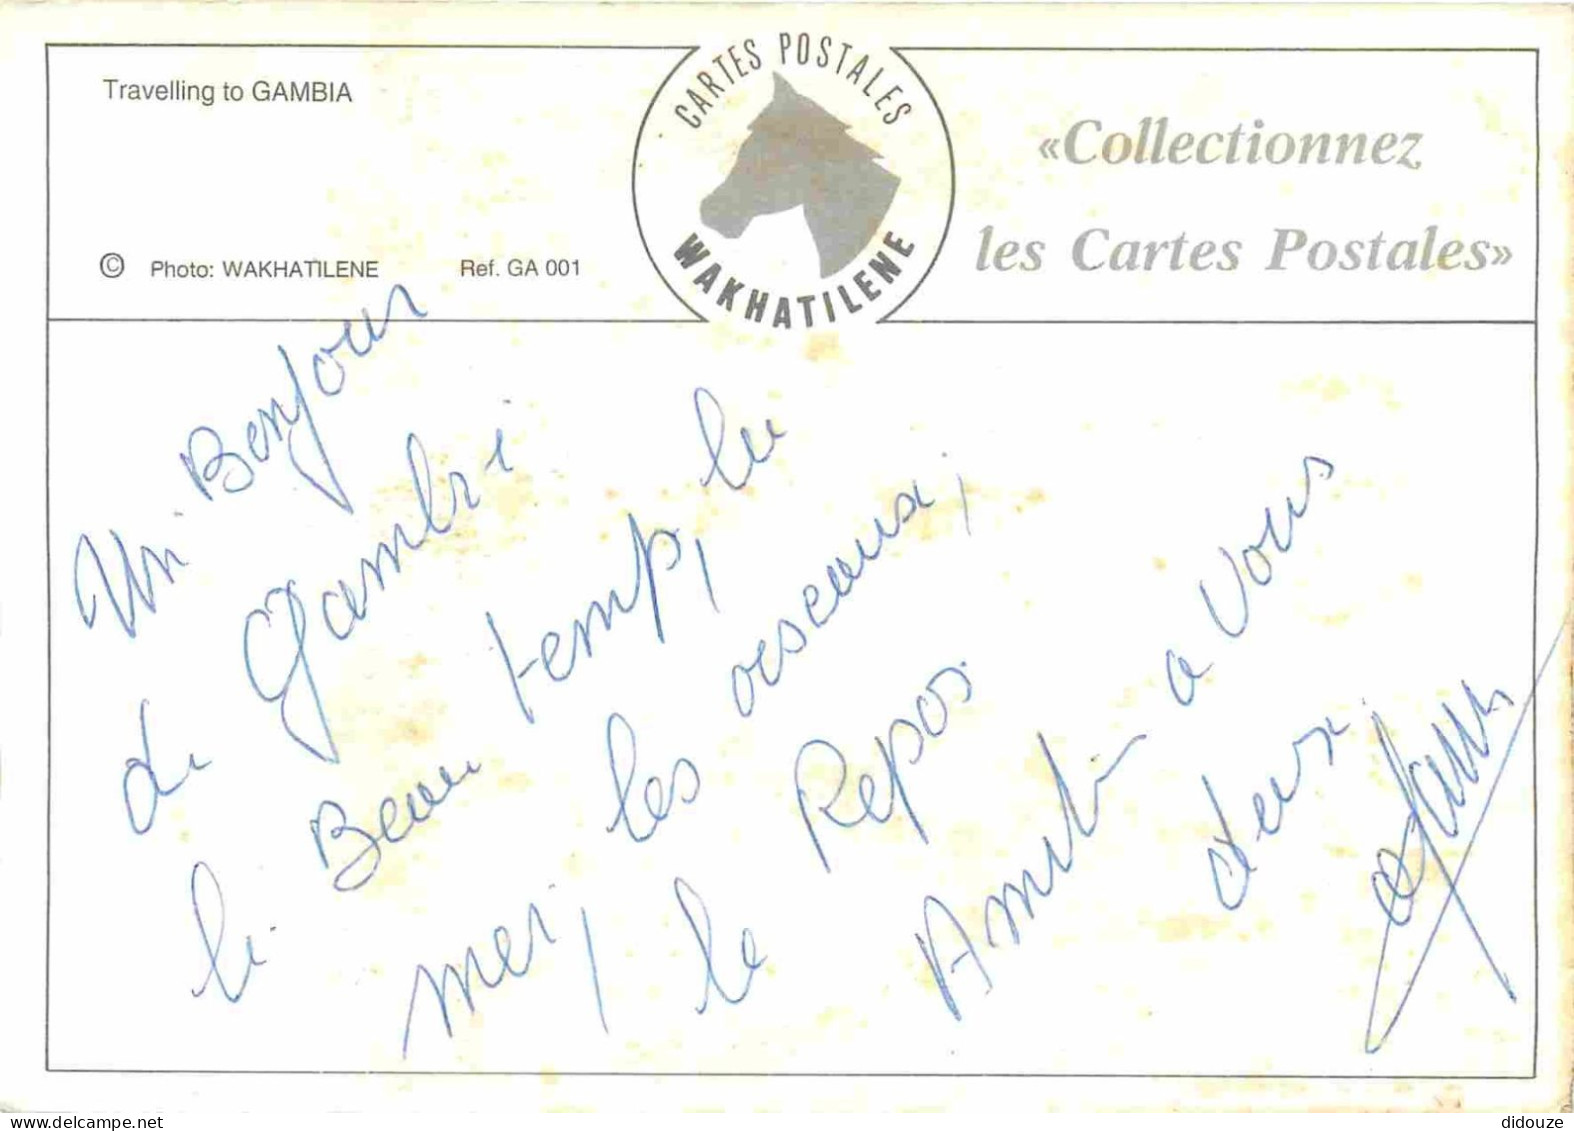 Travelling to GAMBIA
© Photo: WAKHATILENE Ref. GA 001
CARTES POSTALES
WAKHATILENE
«Collectionnez
les Cartes Postales»
Un Bonjour
de Gambie
le Beau temp, la
mer, les oiseaux,
le Repos.
Amitié a Vous
deux.
didouze